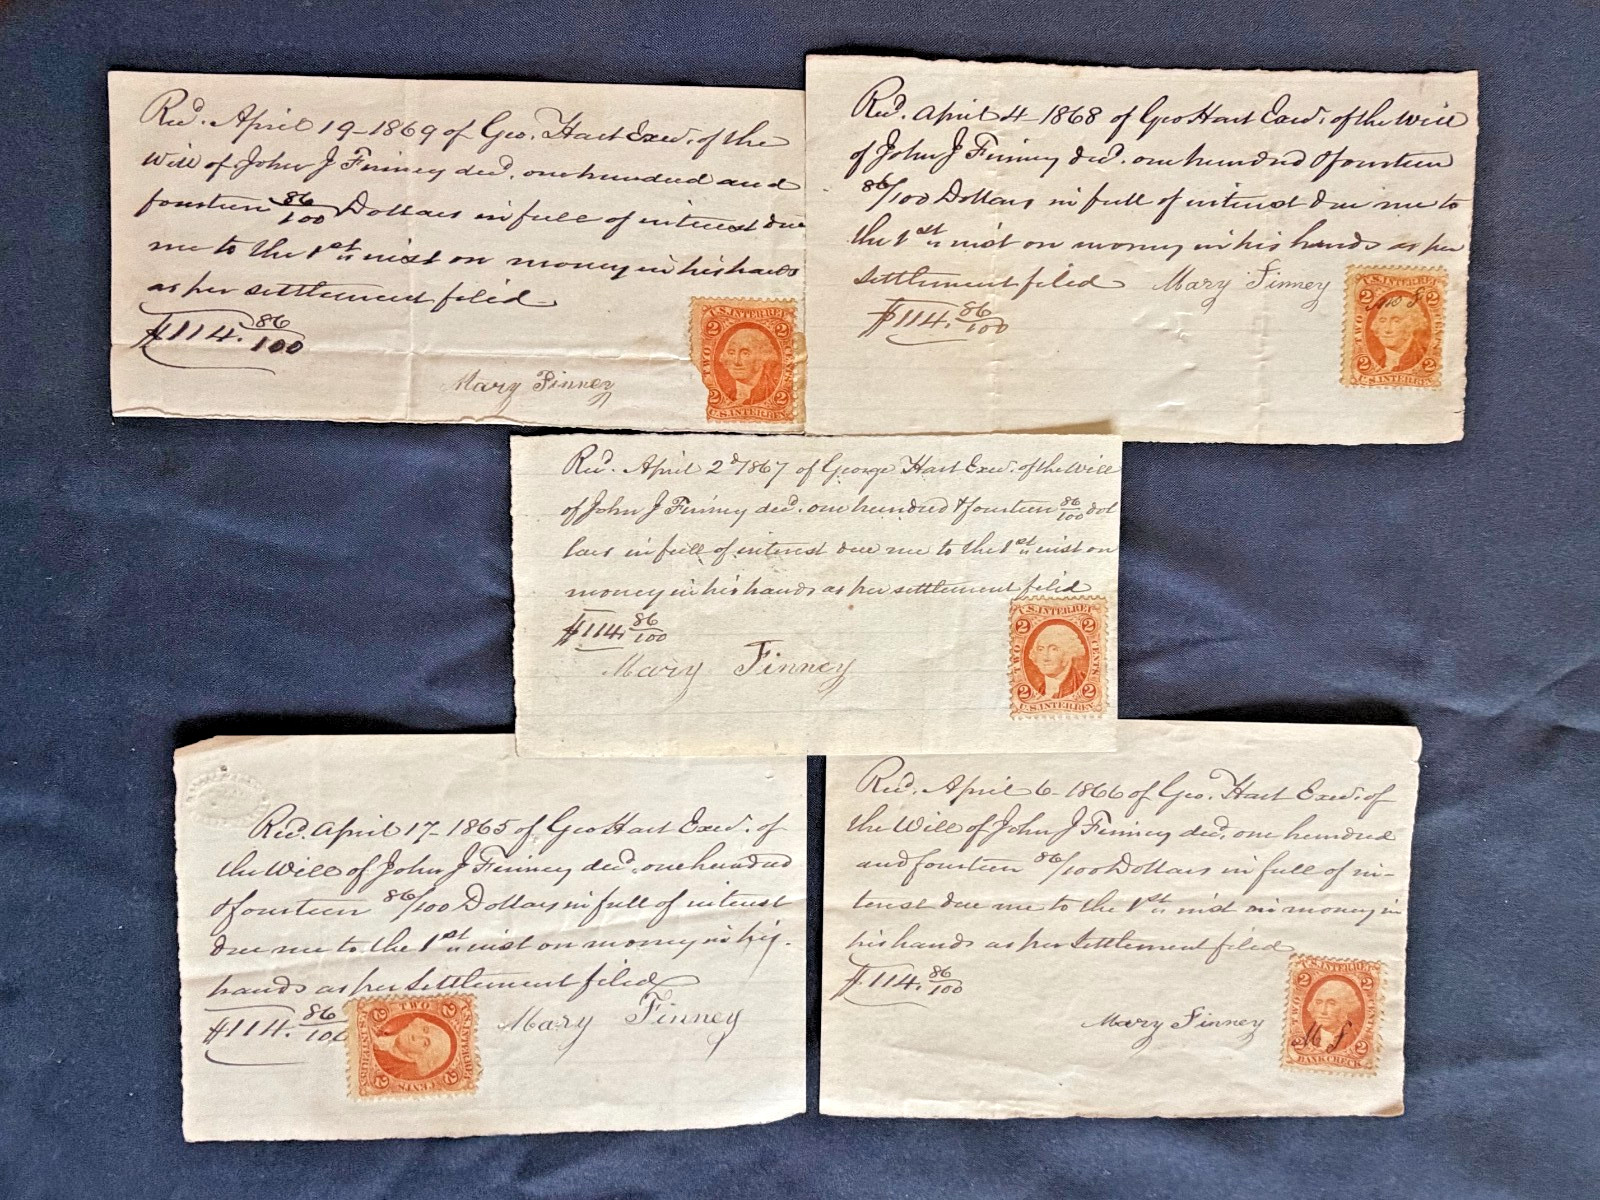 Recd. April 19-1869 of Geo. Hart Execr. of the
Will of John J Finney decd. one hundred and
fourteen 86/100 Dollars in full of interest due
me to the 1st inst on money in his hands
as per settlement filed
$114.86/100
Mary Finney
U.S. INTER. REV.
2 2
TWO CENTS
2 2
U.S. INTER. REV.
Recd. April 4-1868 of Geo Hart Execr. of the Will
of John J Finney decd. one hundred & fourteen
86/100 Dollars in full of interest due me to
the 1st inst on money in his hands as per
settlement filed Mary Finney
$114.86/100
U.S. INTER. REV.
2 2
TWO CENTS
2 2
U.S. INTER. REV.
Recd. April 2d 1867 of George Hart Execr. of the Will
of John J Finney decd. one hundred & fourteen 86/100 dol
lars in full of interest due me to the 1st inst on
money in his hands as per settlement filed
$114.86/100
Mary Finney
U.S. INTER. REV.
2 2
TWO CENTS
2 2
U.S. INTER. REV.
Recd. April 17-1865 of Geo Hart Execr. of
the Will of John J Finney decd. one hundred
& fourteen 86/100 Dollars in full of interest
due me to the 1st inst on money in his
hands as per settlement filed
$114.86/100
Mary Finney
U.S. INTER. REV.
2 2
TWO CENTS
2 2
Recd. April 6-1866 of Geo. Hart Execr. of
the Will of John J Finney decd. one hundred
and fourteen 86/100 Dollars in full of in-
terest due me to the 1st inst on money in
his hands as per settlement filed
$114.86/100
Mary Finney
U.S. INTER. REV.
2 2
TWO CENTS
M F
2 2
BANK CHECK